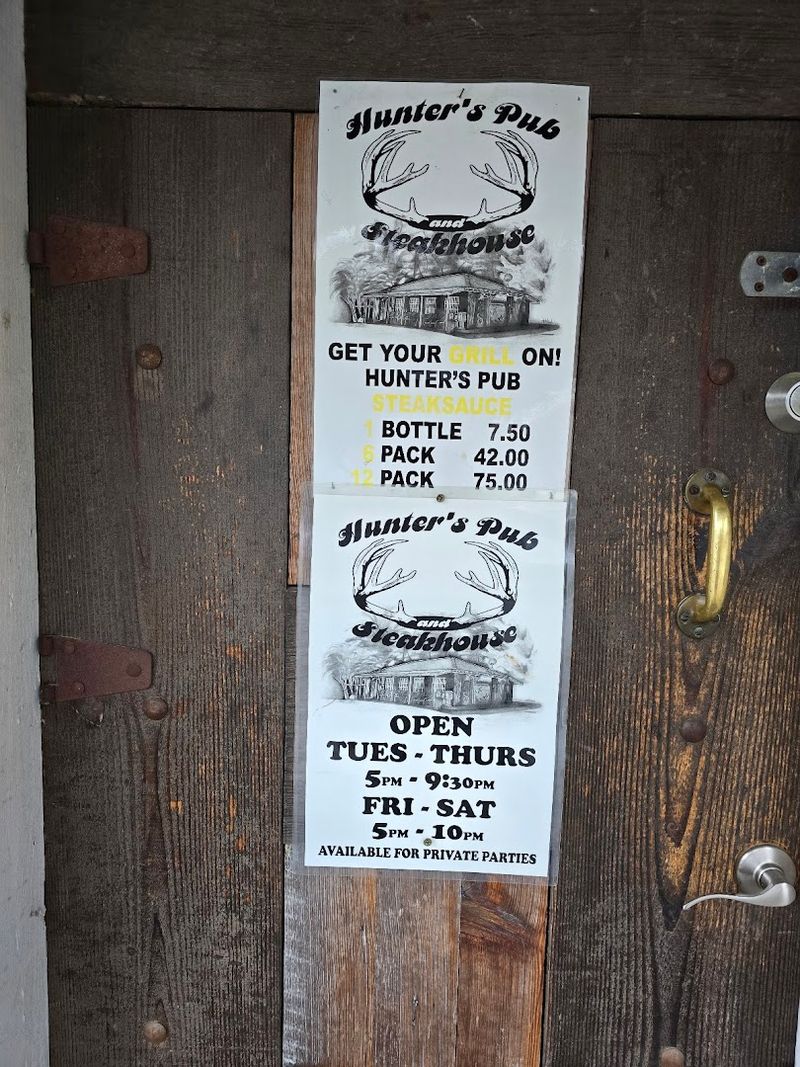 Hunter's Pub
and
Steakhouse
GET YOUR GRILL ON!
HUNTER'S PUB
STEAKSAUCE
1 BOTTLE 7.50
6 PACK 42.00
12 PACK 75.00
Hunter's Pub
and
Steakhouse
OPEN
TUES - THURS
5PM - 9:30PM
FRI - SAT
5PM - 10PM
AVAILABLE FOR PRIVATE PARTIES